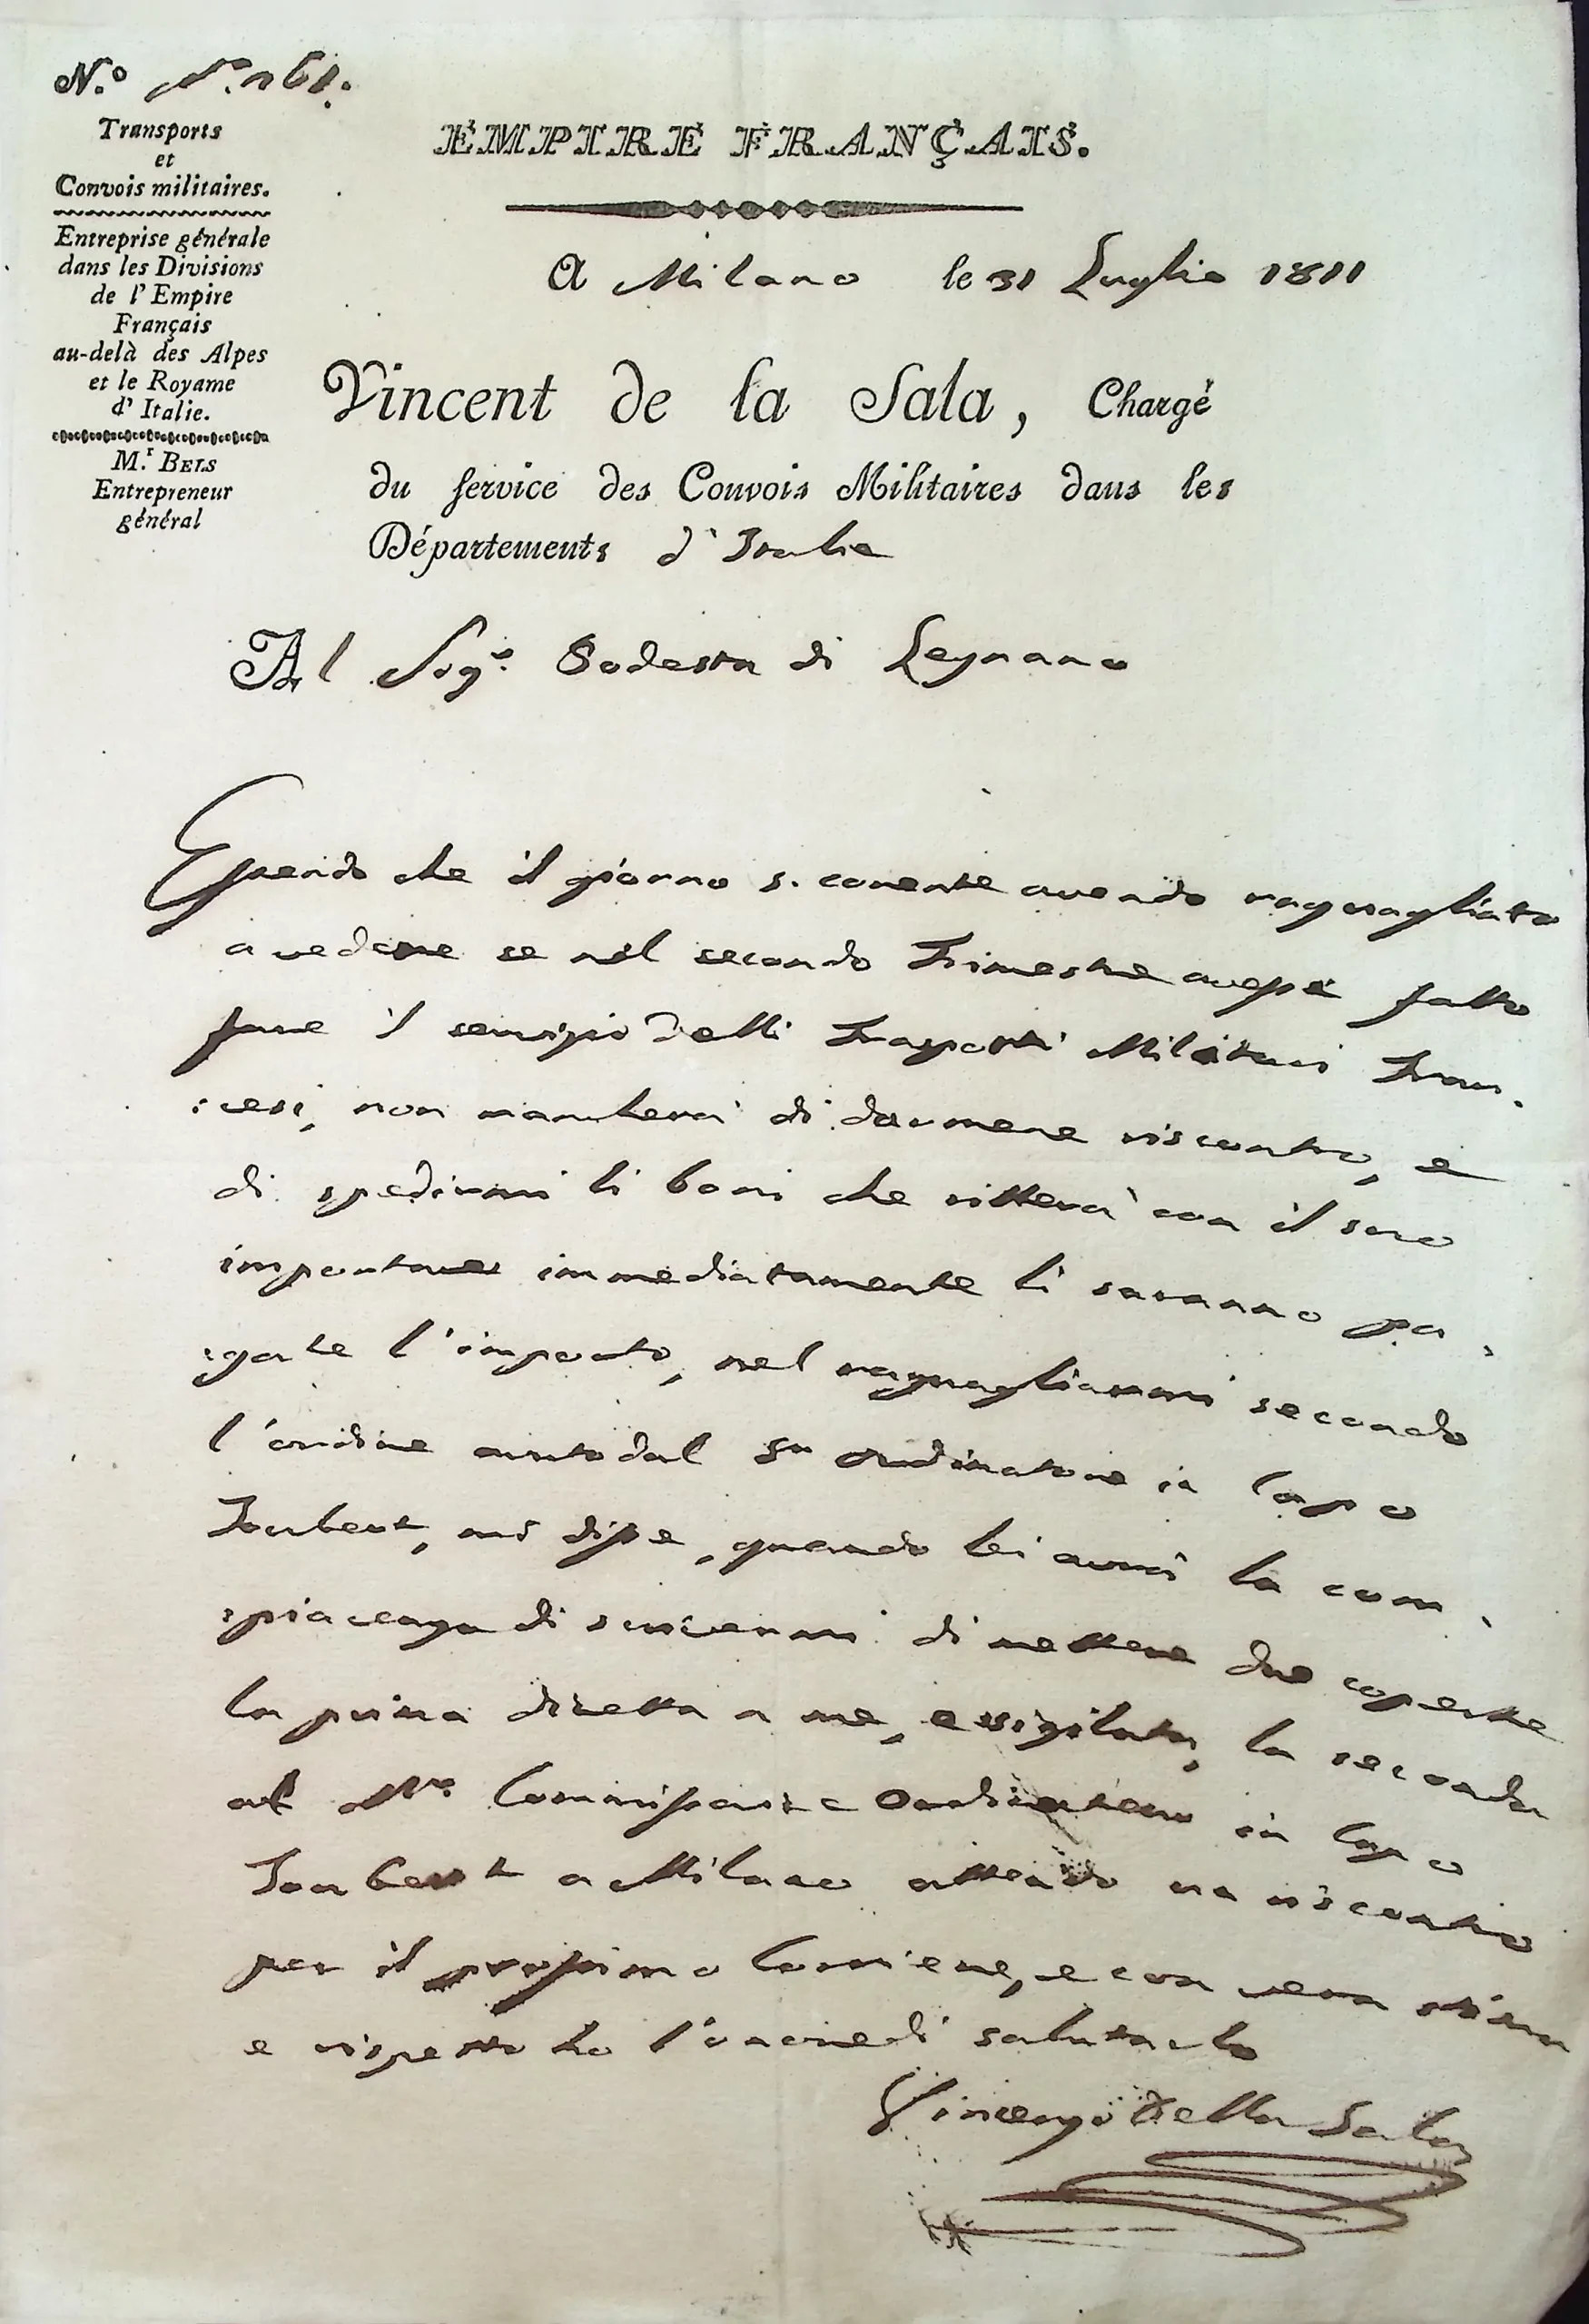 N.º
Transports
et
Convois militaires.
Entreprise générale
dans les Divisions
de l' Empire
Français
au-delà des Alpes
et le Royame
d' Italie.
M.r BELS
Entrepreneur
général
EMPIRE FRANÇAIS.
A Milano le 31 Luglio 1811
Vincent de la Sala, Chargé
du service des Convois Militaires dans les
Départements d' Italia
Al Sig.e Podesta di Legnano
Essendo che il giorno s. corrente avendo raguagliato
a vedere se nel secondo Trimestre avesse fatto
fare il servizio delli Trasporti Militari Fran.
:cesi, non mancherà di darmene riscontro, e
di spedirmi li boni che ritterà con il suo
importare immediatamente li saranno pa.
:gate l'importo, nel raguagliarmi secondo
l'ordine avuto dal Sr ordinatore in Capo
Joubert, mi disse, quando lei avrà la com.
:piacenza di scrivermi di mettere due coperte
la prima diretta a me, e sigilata, la seconda
al Commissario Ordinatore in Capo
Joubert a Milano attendo un riscontro
per il prossimo Corriere, e con vera stima
e rispetto ho l'onore di salutarlo
Vincenzo Della Sala